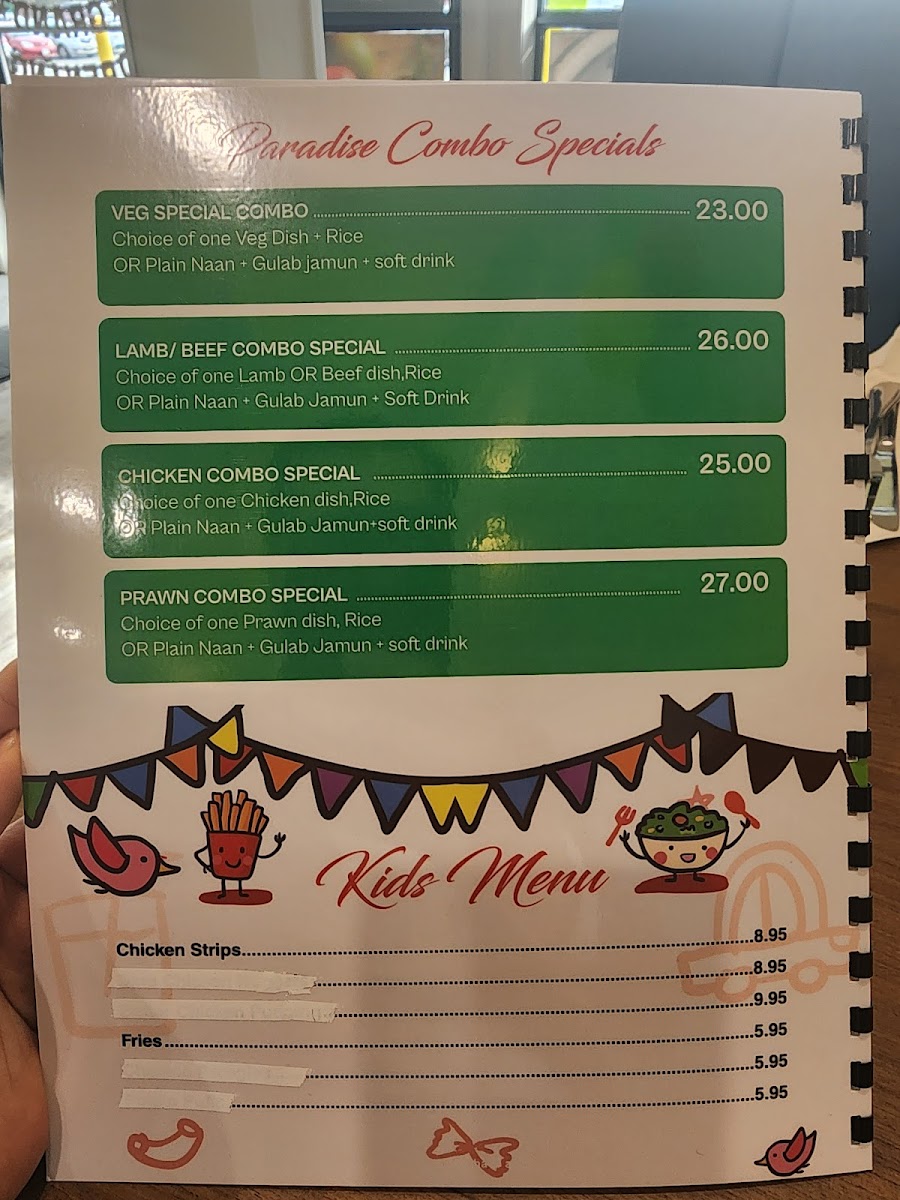 Paradise Combo Specials
VEG SPECIAL COMBO 23.00
Choice of one Veg Dish + Rice
OR Plain Naan + Gulab jamun + soft drink
LAMB/ BEEF COMBO SPECIAL 26.00
Choice of one Lamb OR Beef dish,Rice
OR Plain Naan + Gulab Jamun + Soft Drink
CHICKEN COMBO SPECIAL 25.00
Choice of one Chicken dish,Rice
OR Plain Naan + Gulab Jamun+soft drink
PRAWN COMBO SPECIAL 27.00
Choice of one Prawn dish, Rice
OR Plain Naan + Gulab Jamun + soft drink
Kids Menu
Chicken Strips 8.95
8.95
9.95
Fries 5.95
5.95
5.95